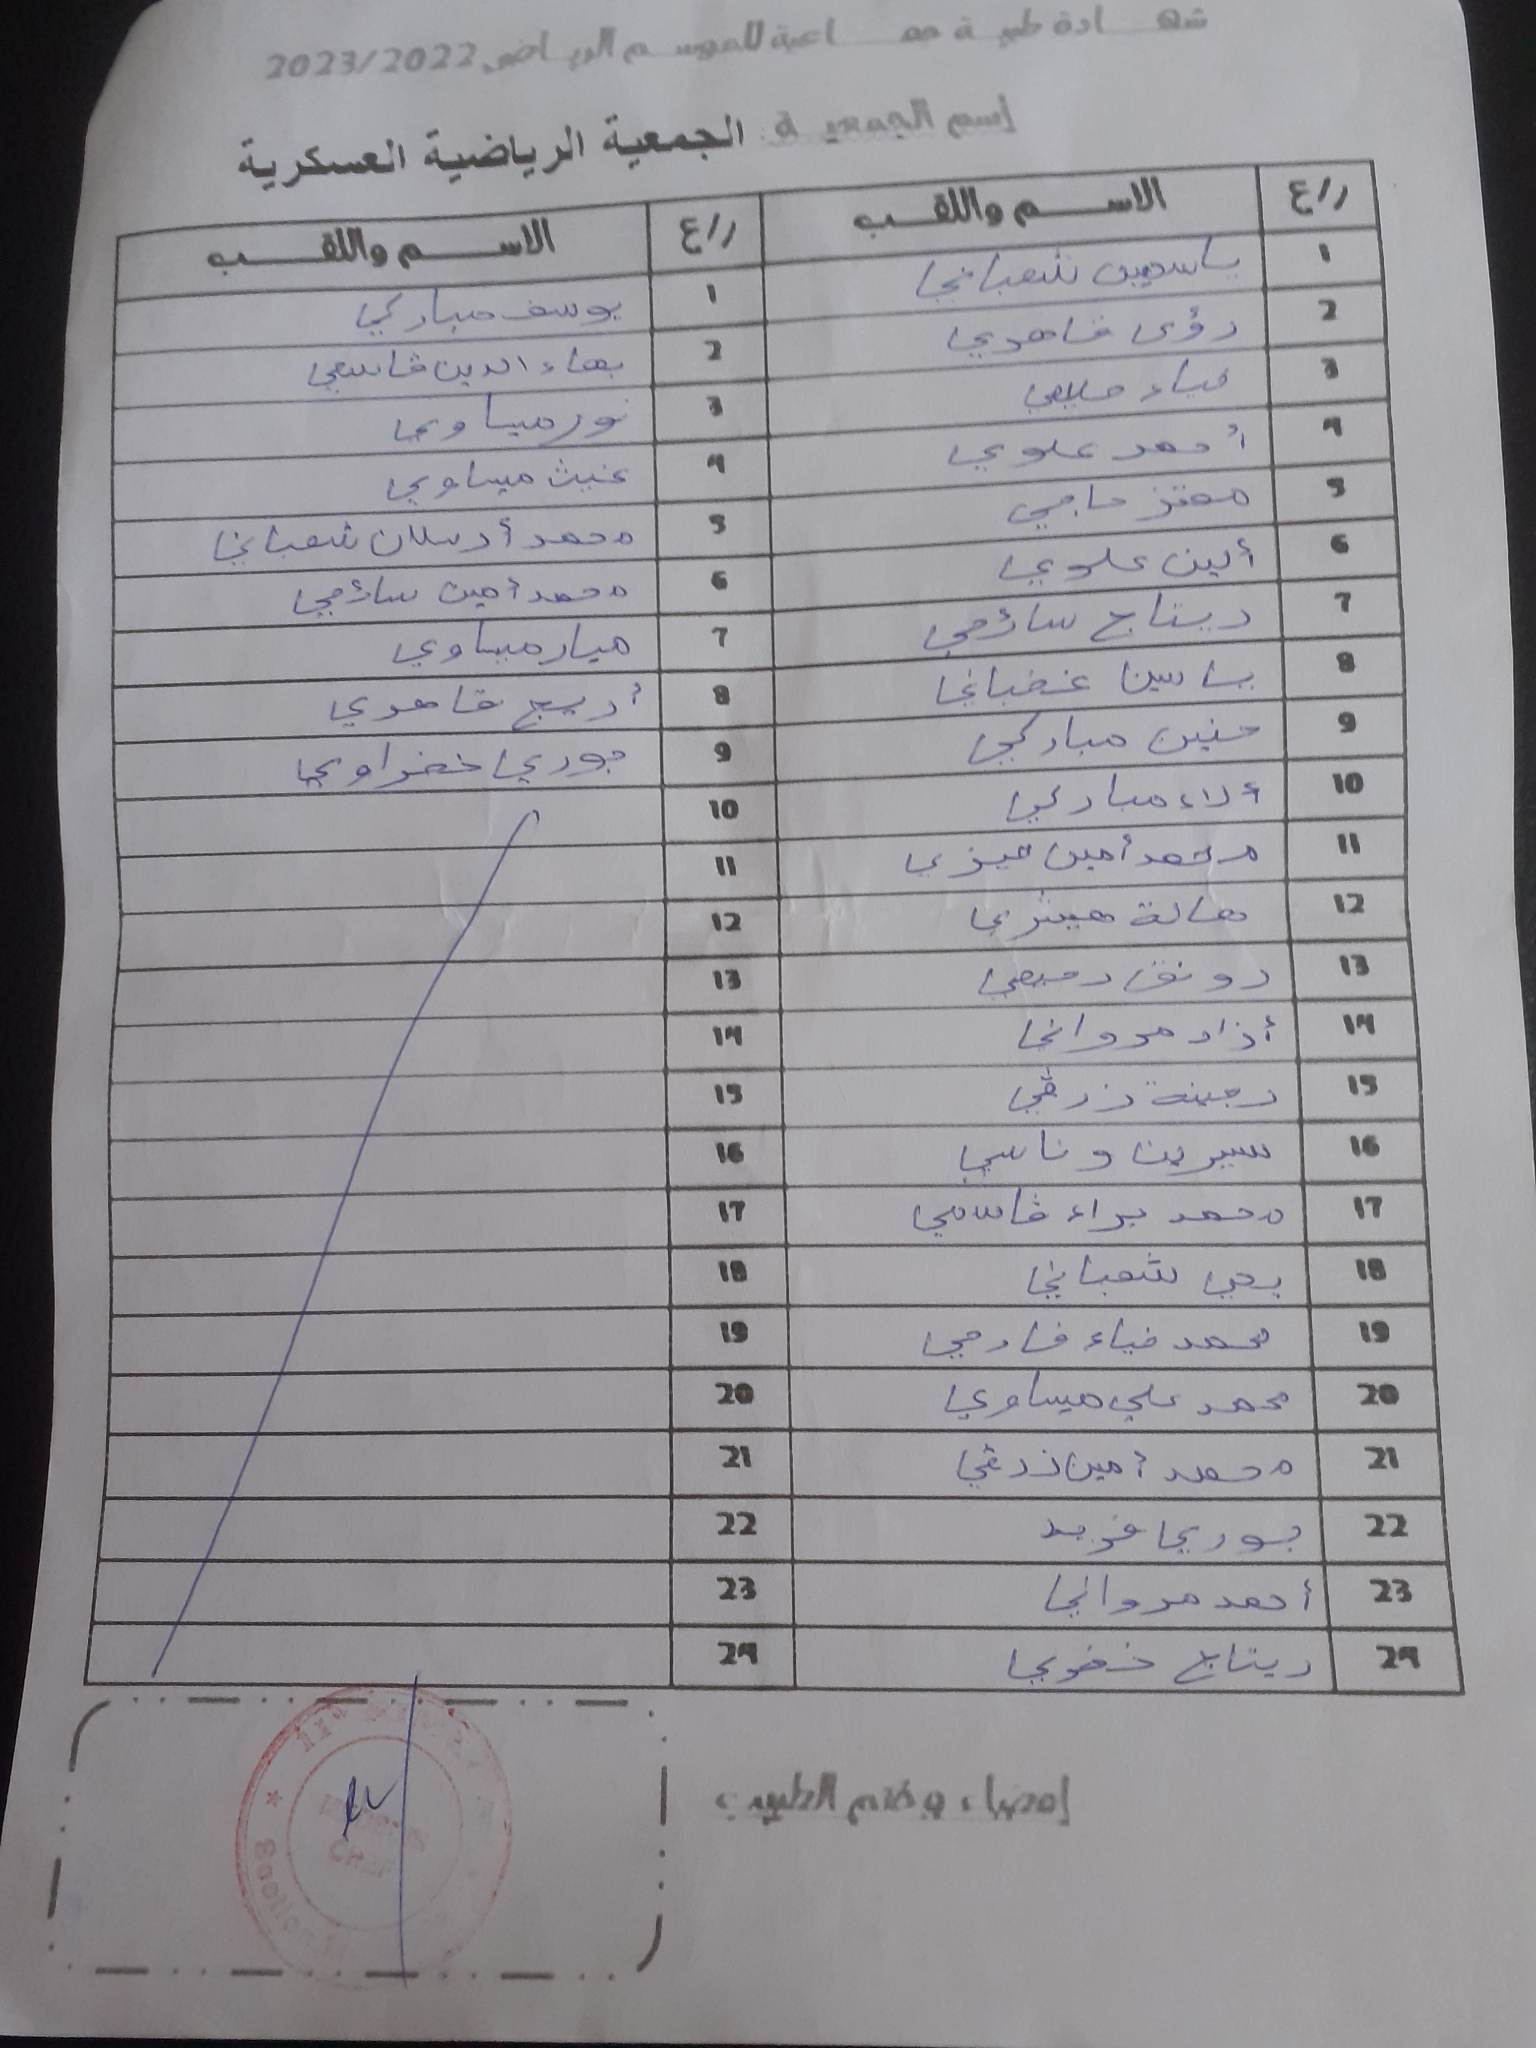 شهادة طبية جماعية للموسم الرياضي 2023/2022
إسم الجمعية: الجمعية الرياضية العسكرية
ع/ر الاسم واللقب ع/ر الاسم واللقب
1 ياسمين شعباني 1 يوسف مباركي
2 رؤى قاهري 2 بهاء الدين قاسمي
3 ضياء 3 نور ميساوي
4 أحمد علوي 4 غيث ميساوي
5 معتز حاجي 5 محمد أرسلان شعباني
6 ألين علوي 6 محمد أمين سلامي
7 ريتاج سلامي 7 ميار ميساوي
8 ياسين غضباني 8 أريج قاهري
9 حنين مباركي 9 جوري خضراوي
10 ألاء مباركي 10
11 محمد أمين ميزي 11
12 هالة هيشري 12
13 رونق 13
14 أزاد مرواني 14
15 زرقي 15
16 سيرين وناسي 16
17 محمد براء قاسمي 17
18 يحي شعباني 18
19 محمد ضياء قارمي 19
20 محمد علي ميساوي 20
21 محمد أمين زرقي 21
22 جوري فريد 22
23 أحمد مرواني 23
24 ريتاج خضوي 24
إمضاء وختم الطبيب